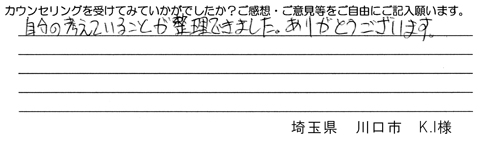 カウンセリングを受けてみていかがでしたか？ご感想・ご意見等をご自由にご記入願います。
自分の考えていることが整理できました。ありがとうございます。
埼玉県　川口市　K.I様